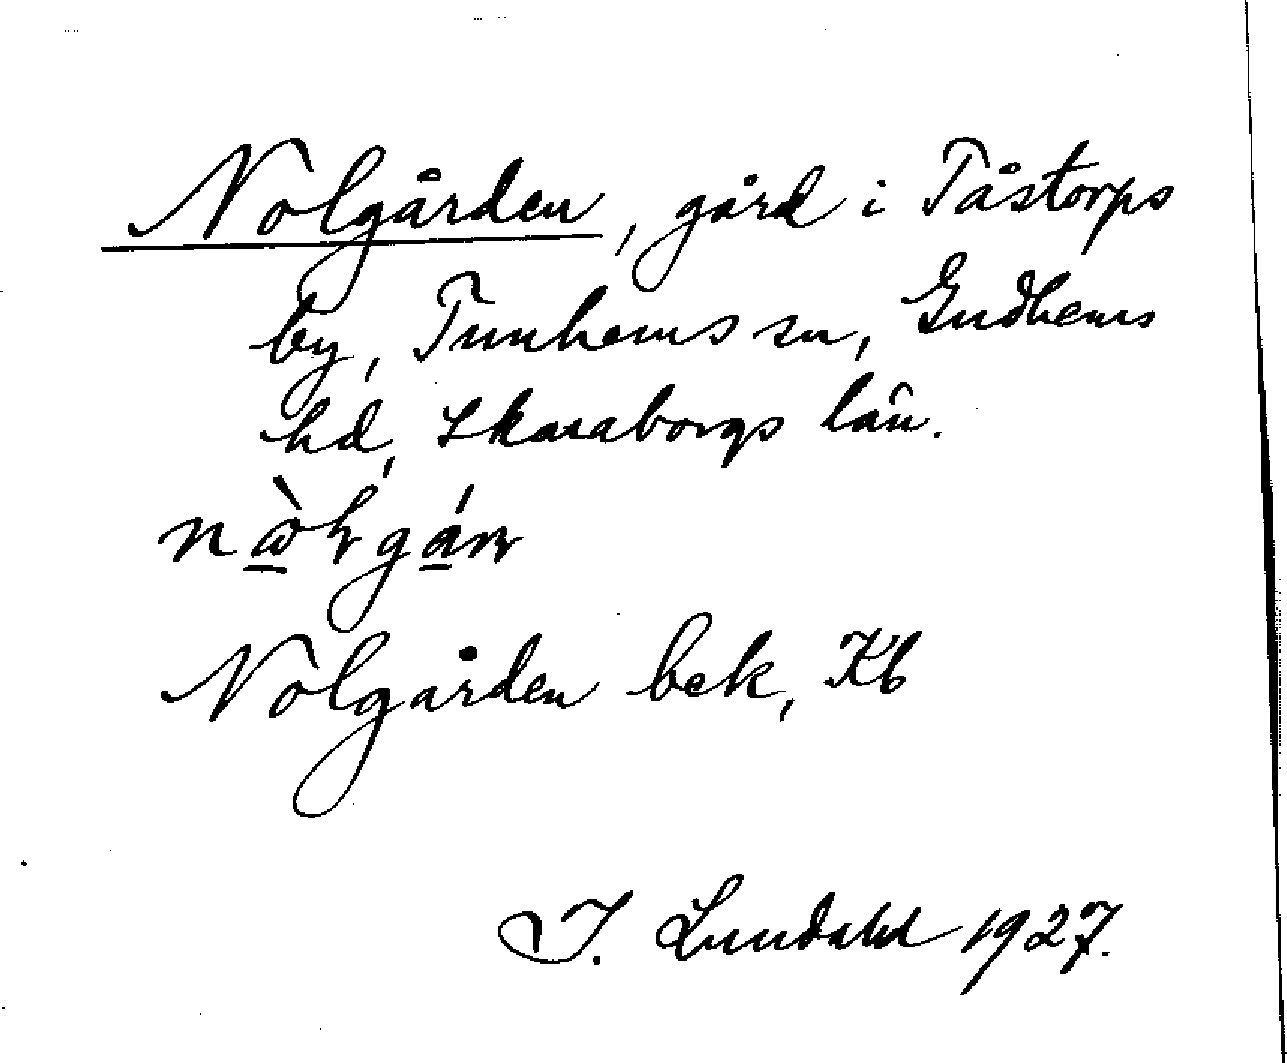 Nolgården, gård i Tåstorps
by, Tunhems sn, Gudhems
hd, Skaraborgs län.
Nolgården bek, Kb
I. Lundahl 1927.